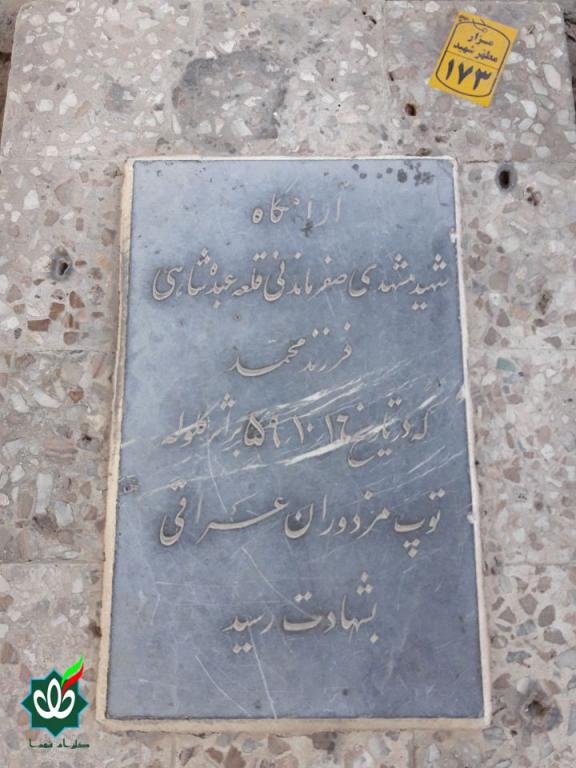 مزار
مطهر شهید
۱۷۳
آرامگاه
شهید مشهدی صفر ماندنی قلعه عبده شاهی
فرزند محمد
که در تاریخ ۱۶ ۱۰ ۵۹ براثر گلوله
توپ مزدوران عراقی
بشهادت رسید
گلزار شهدا